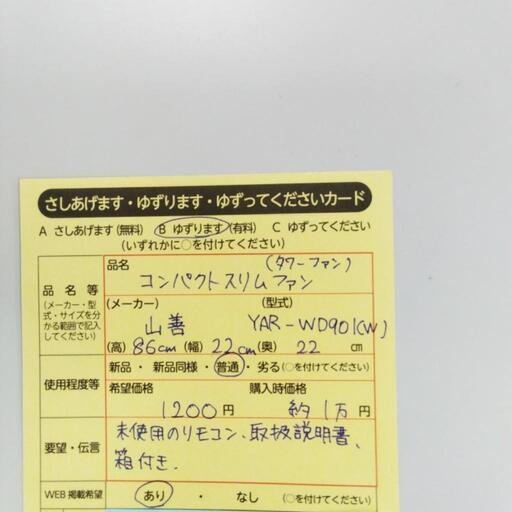 さしあげます・ゆずります・ゆずってくださいカード
A さしあげます(無料) B ゆずります(有料) C ゆずってください
(いずれかに○を付けてください)
品名等
(メーカー・型
式・サイズを分
かる範囲で記入
してください)
品名 (タワーファン)
コンパクトスリムファン
(メーカー) (型式)
山善 YAR-WD901(W)
(高)86cm (幅)22cm (奥)22cm
使用程度等
新品・新品同様・普通・劣る(○を付けてください)
希望価格 購入時価格
1200円 約1万円
要望・伝言
未使用のリモコン、取扱説明書、
箱付き.
WEB掲載希望 あり ・ なし (○を付けてください)